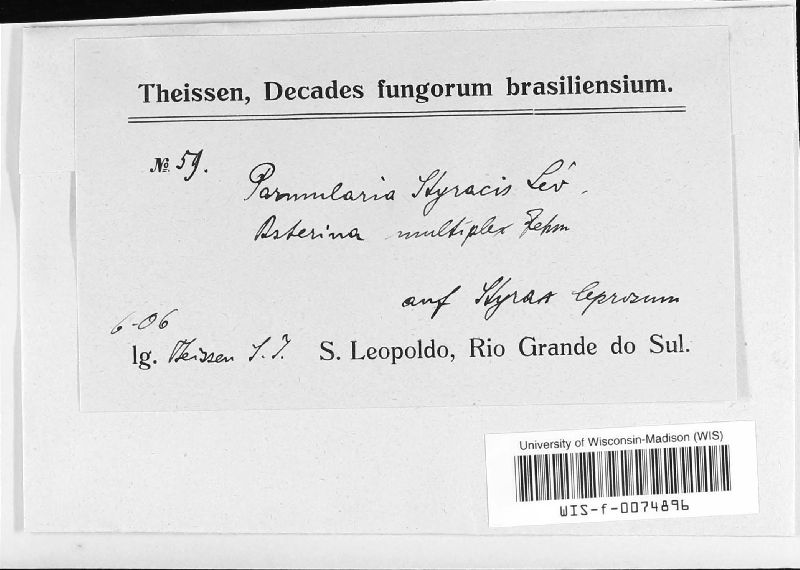 Theissen, Decades fungorum brasiliensium.
№ 59.
Parmularia Styracis Lév.
Asterina multiplex Rehm
auf Styrax leprosum
6-06
lg. Theissen S. J. S. Leopoldo, Rio Grande do Sul.
University of Wisconsin-Madison (WIS)
WIS-f-0074896